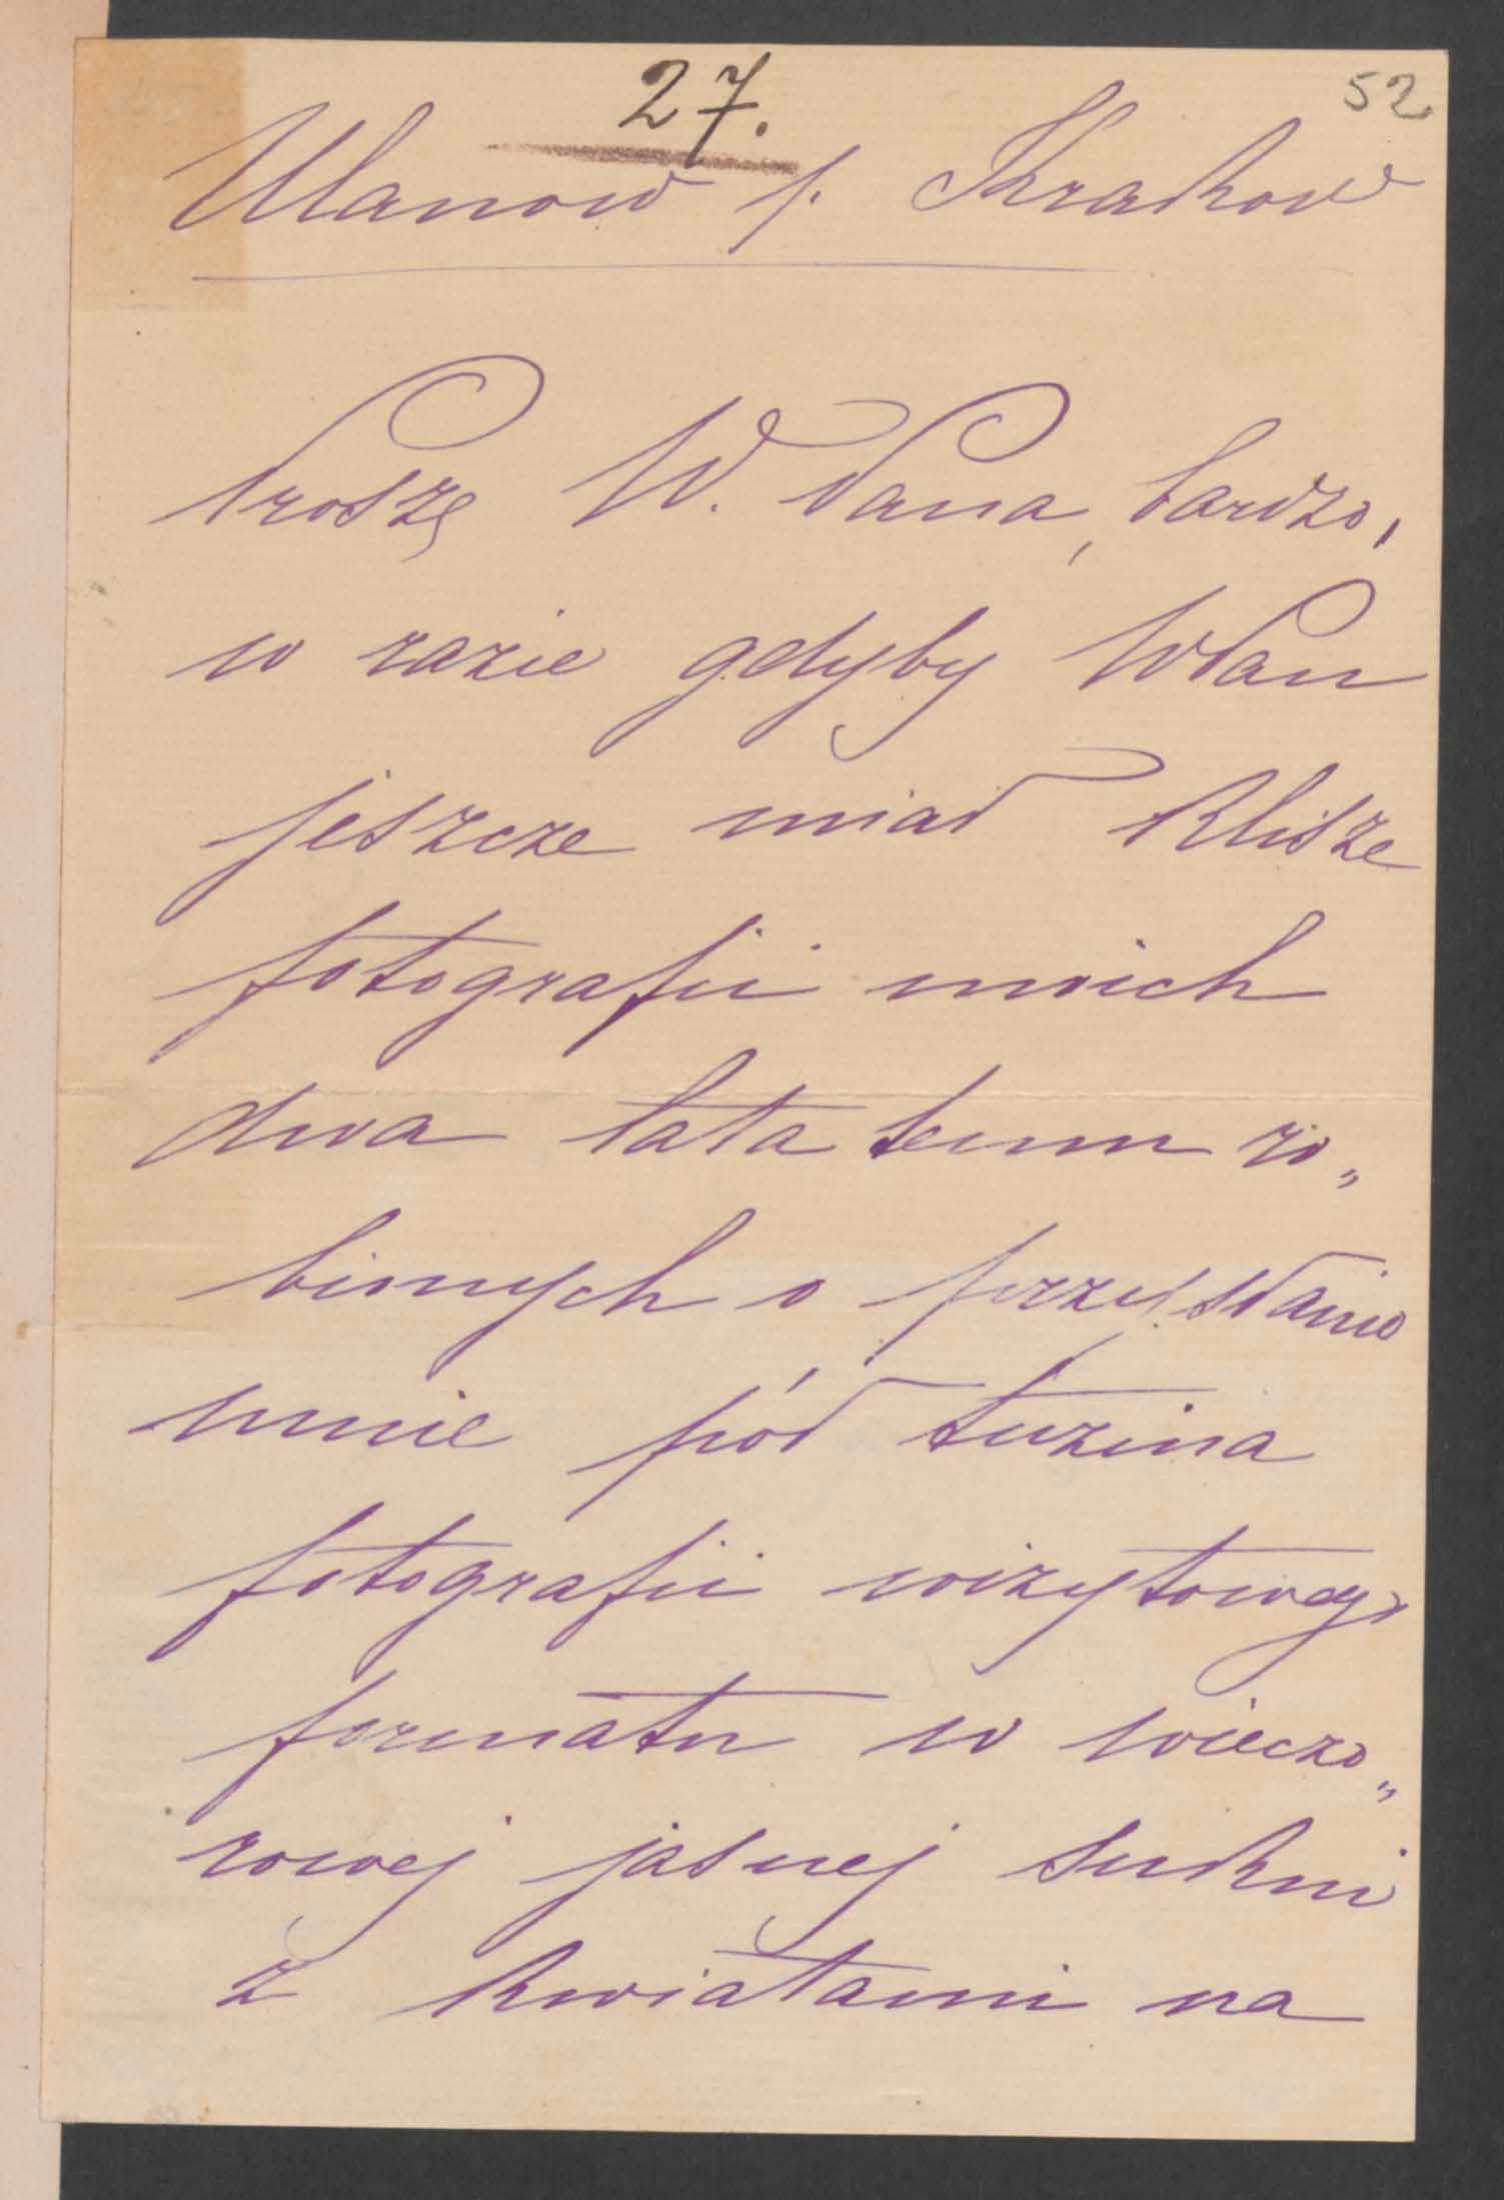 27.
52
Ulanow p. Krakow
Proszę W. Pana, bardzo,
w razie gdyby WPan
jeszcze miał klisze
fotografii moich
dwa lata temu ro„
bionych o przysłanie
mnie pół tuzina
fotografii wizytowego
formatu w wieczo„
rowej jasnej sukni
z kwiatami na